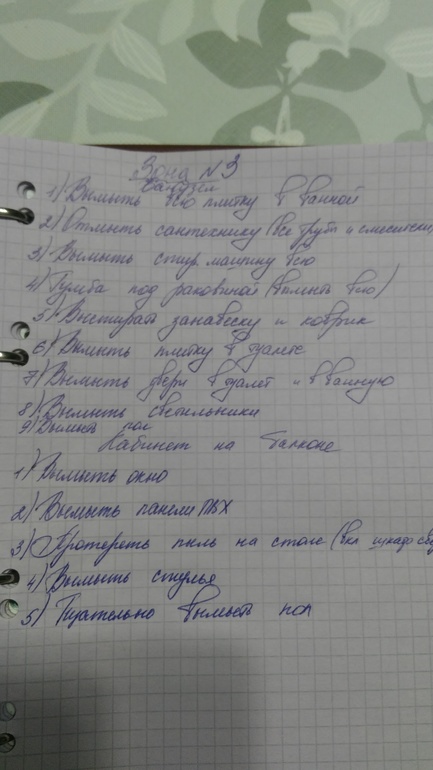 Зона №3
Санузел
1) Вымыть всю плитку в ванной
2) Отмыть сантехнику (все трубы и смесители)
3) Вымыть стир машину всю
4) Тумба под раковиной (вымыть всю)
5) Выстирать занавеску и коврик
6) Вымыть плитку в туалете
7) Вымыть двери в туалет и в ванную
8) Вымыть светильники
9) Вымыть пол
Кабинет на балконе
1) Вымыть окно
2) Вымыть панели ПВХ
3) Протереть пыль на столе (вкл шкаф
4) Вымыть стулья
5) Тщательно вымыть пол